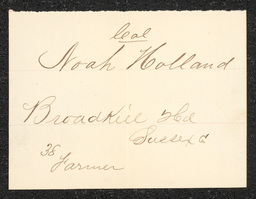 Col
Noah Holland
Broadkill Hd
Sussex C
38
Farmer